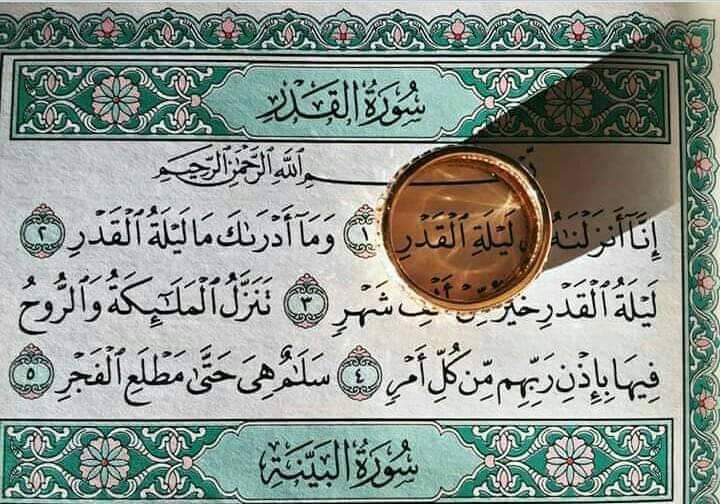 سُورَةُ الْقَدْرِ
ـمِ ٱللَّهِ ٱلرَّحْمَٰنِ ٱلرَّحِيمِ
إِنَّآ أَنزَلْنَٰهُ لَيْلَةِ ٱلْقَدْرِ ١ وَمَآ أَدْرَىٰكَ مَا لَيْلَةُ ٱلْقَدْرِ ٢
لَيْلَةُ ٱلْقَدْرِ خَيْرٌ مِّنْ شَهْرٍ ٣ تَنَزَّلُ ٱلْمَلَٰٓئِكَةُ وَٱلرُّوحُ
فِيهَا بِإِذْنِ رَبِّهِم مِّن كُلِّ أَمْرٍ ٤ سَلَٰمٌ هِىَ حَتَّىٰ مَطْلَعِ ٱلْفَجْرِ ٥
سُورَةُ الْبَيِّنَةِ